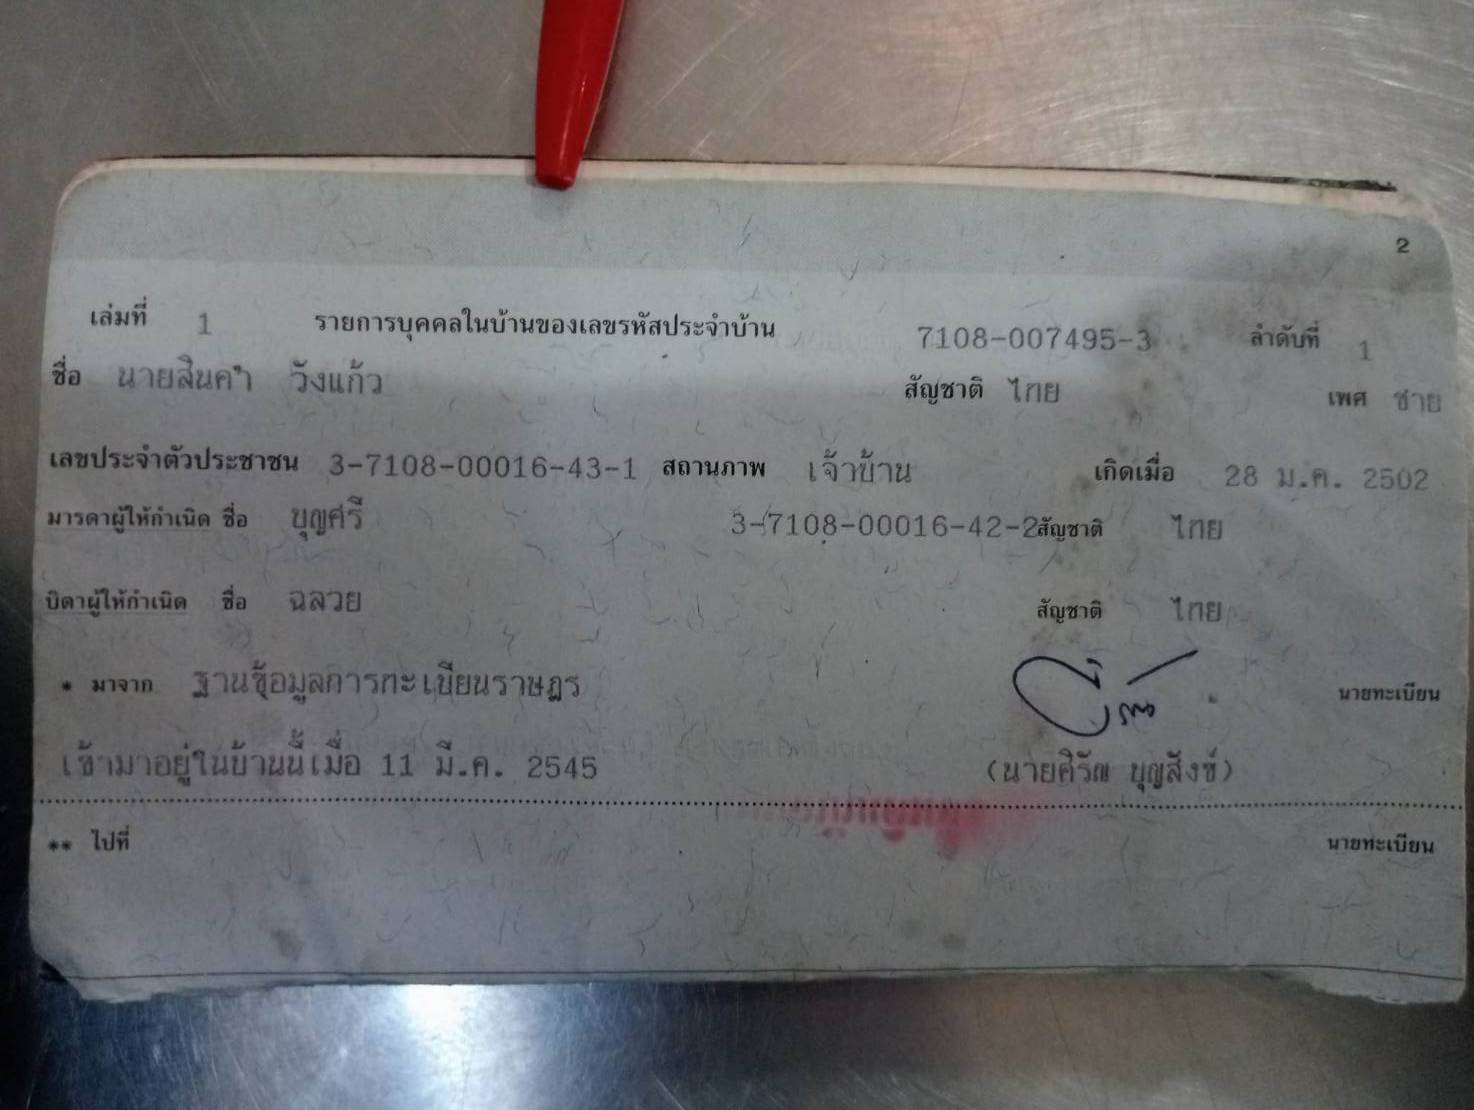 2
เล่มที่ 1 รายการบุคคลในบ้านของเลขรหัสประจำบ้าน 7108-007495-3 ลำดับที่ 1
ชื่อ นายสินคำ วังแก้ว สัญชาติ ไทย เพศ ชาย
เลขประจำตัวประชาชน 3-7108-00016-43-1 สถานภาพ เจ้าบ้าน เกิดเมื่อ 28 ม.ค. 2502
มารดาผู้ให้กำเนิด ชื่อ บุญศรี 3-7108-00016-42-2 สัญชาติ ไทย
บิดาผู้ให้กำเนิด ชื่อ ฉลวย สัญชาติ ไทย
* มาจาก ฐานข้อมูลการทะเบียนราษฎร นายทะเบียน
เข้ามาอยู่ในบ้านนี้เมื่อ 11 มี.ค. 2545 (นายศิรัณ บุญสิงข์)
** ไปที่ นายทะเบียน